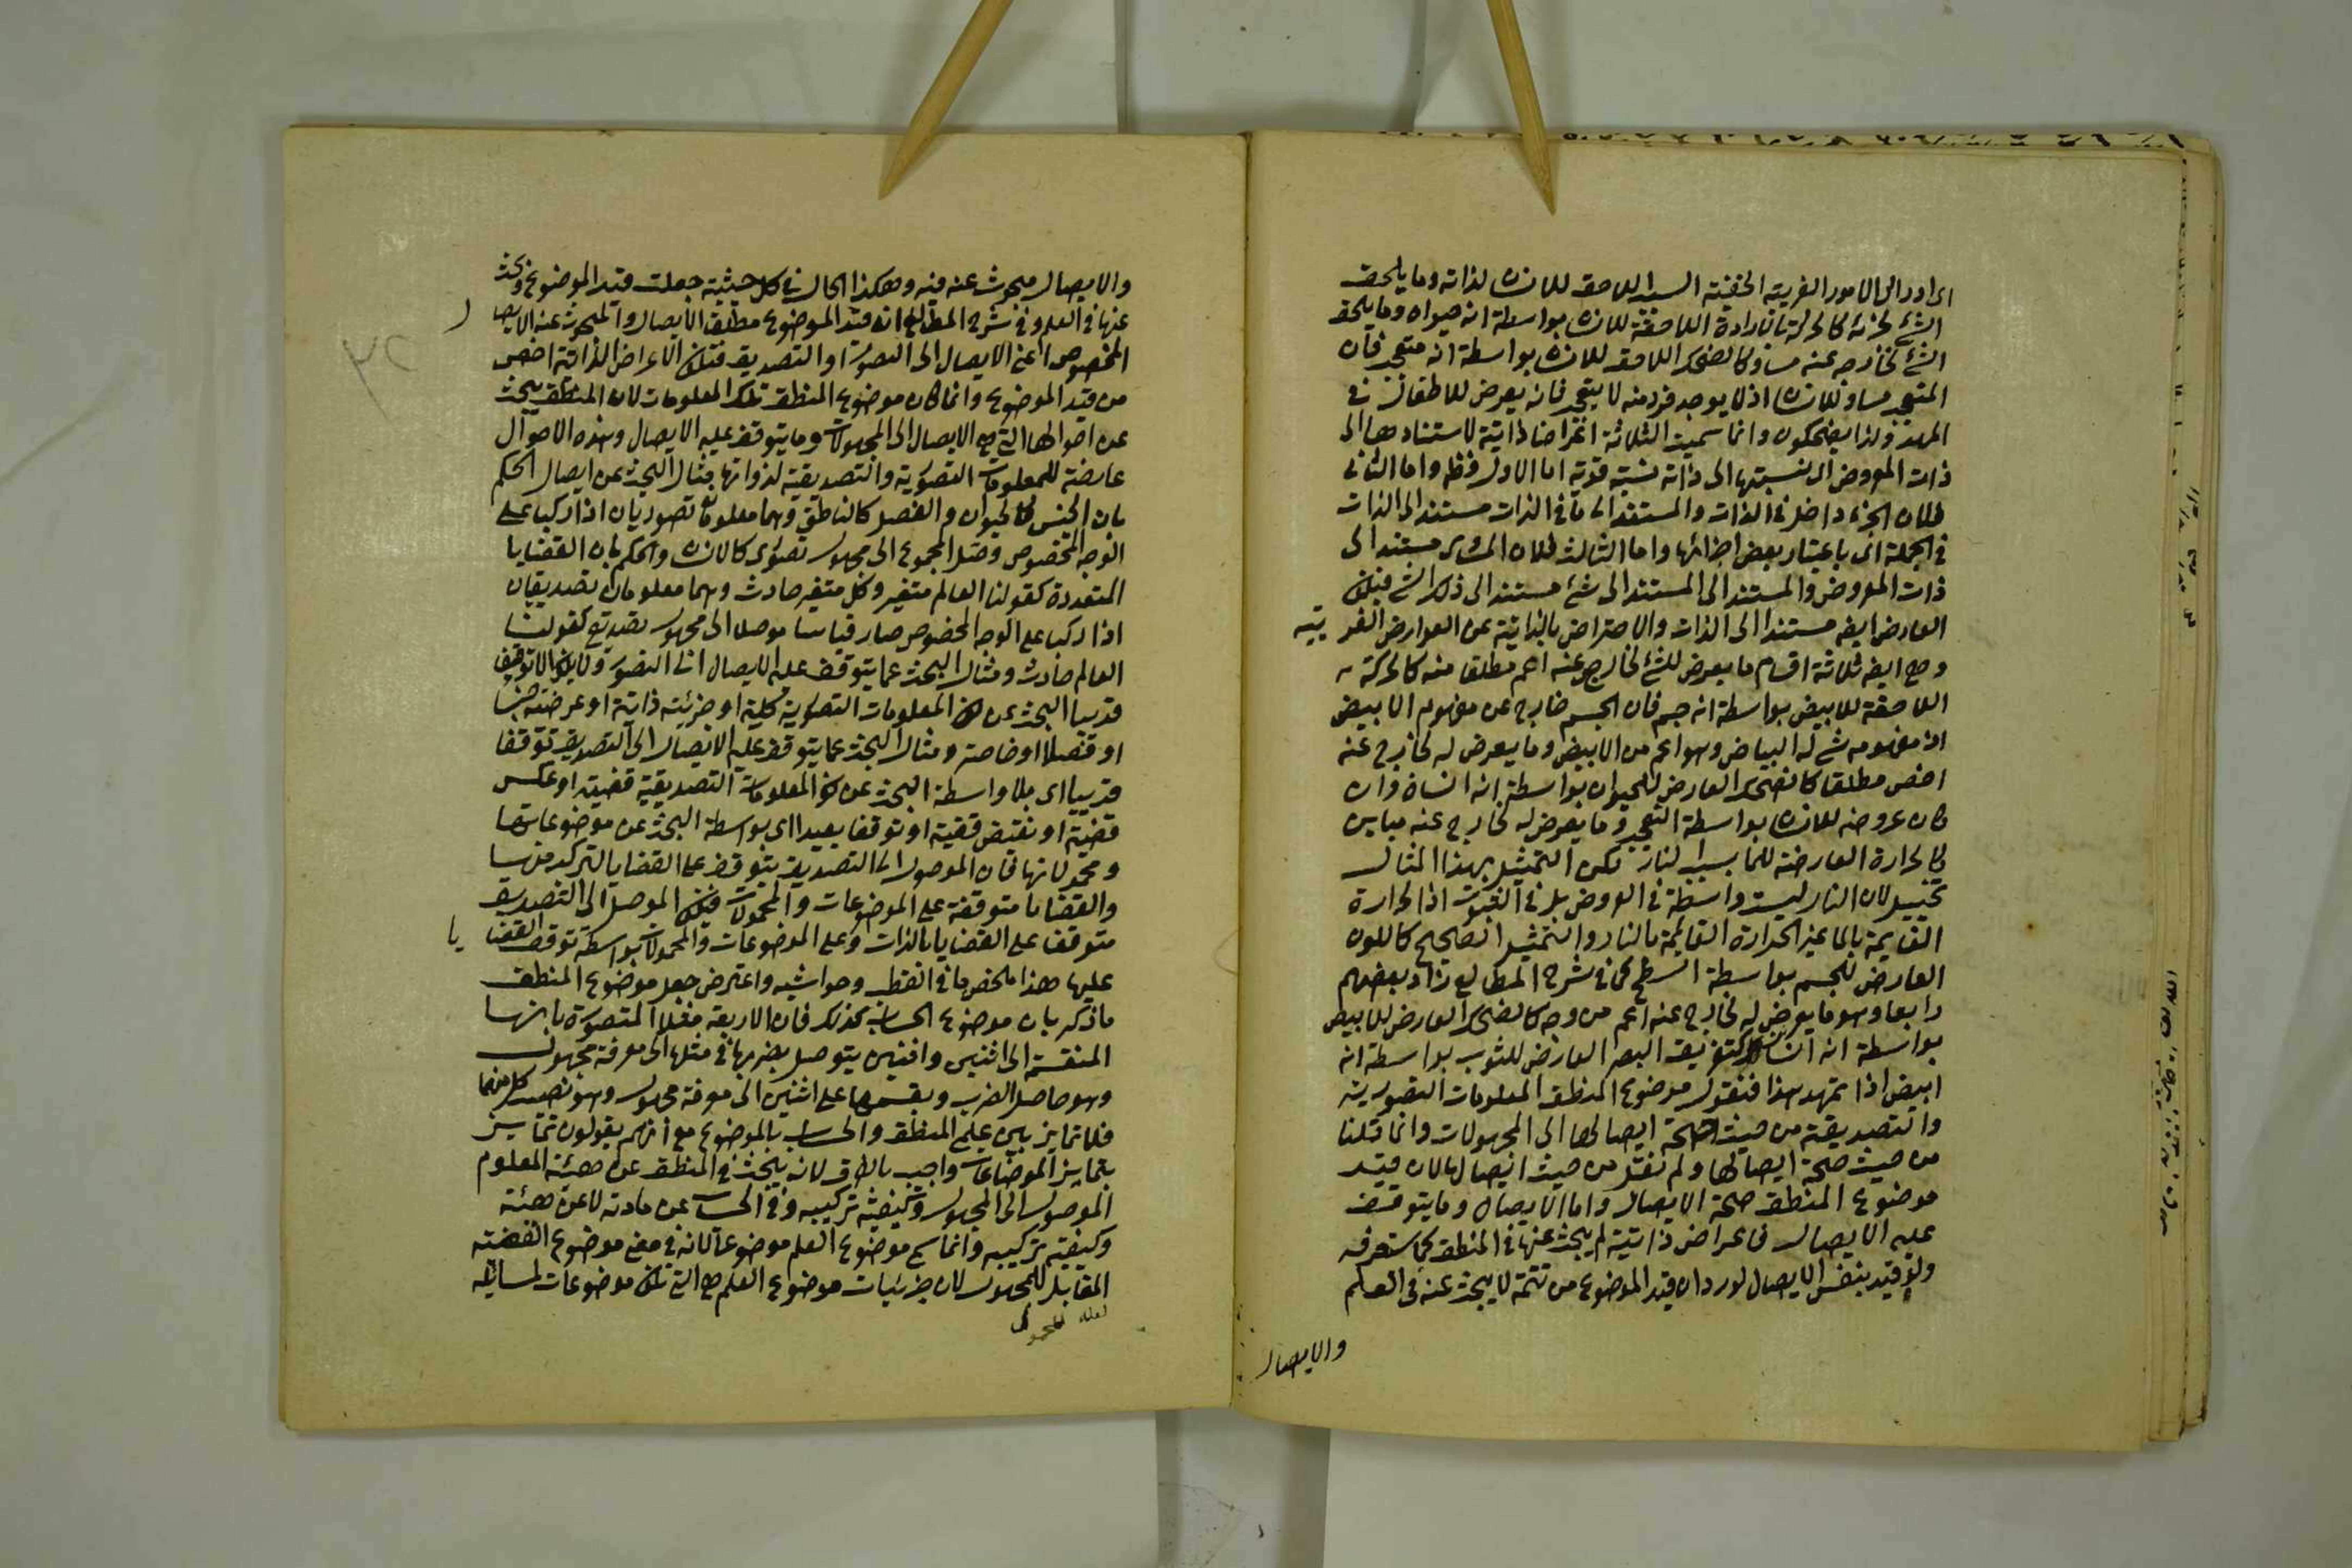 اى ادراك الامور الغريبة الخفية السبب اللاحق للانسان لذاته وما يلحق
الشئ لجزئه كالحركة بالارادة اللاحقة للانسان بواسطة انه حيوان وما يلحق
الشئ لخارج عنه مساو كالضحك اللاحق للانسان بواسطة انه متعجب فان
المتعجب مساو للانسان اذ لا يوجد فرد منه لا يتعجب فانه يعرض للاطفال في
المهد ولذا يضحكون وانما سميت الثلاثة اعراضا ذاتية لاستنادها الى
ذات المعروض اى نسبتها الى ذاته نسبة قوية اما الاول فظ واما الثانى
فلان الجزء داخل فى الذات والمستند الى ما فى الذات مستند الى الذات
فى الجملة اى باعتبار بعض اجزائها واما الثالث فلان المساوى مستند الى
ذات المعروض والمستند الى المستند الى شئ مستند الى ذلك الشئ فيكون
العارض ايضه مستندا الى الذات والاحتراض بالذاتية عن العوارض الغريبة
وهى ايضه ثلاثة اقسام ما يعرض للشئ لخارج عنه اعم مطلقا منه كالحركة
اللاحقة للابيض بواسطة انه جسم فان الجسم خارج عن مفهوم الابيض
اذ مفهومه شئ له البياض وهو اعم من الابيض وما يعرض له لخارج عنه
اخص مطلقا كالضحك العارض للحيوان بواسطة انه انسان وان
كان عروضه للانسان بواسطة التعجب وما يعرض له لخارج عنه مباين
كالحرارة العارضة للماء بسبب النار لكن التمثيل بهذا المثال
تخييل لان النار ليست واسطة فى العروض بل فى الثبوت اذ الحرارة
القايمة بالماء غير الحرارة القايمة بالنار والتمثيل الصحيح كاللون
العارض للجسم بواسطة السطح كما فى شرح المطالع زاد بعضهم
رابعا وهو ما يعرض له لخارج عنه اعم من وجه كالضحك العارض للابيض
بواسطة انه انسان وكتفريق البصر العارض للثوب بواسطة انه
ابيض اذا تمهد هذا فنقول موضوع المنطق المعلومات التصورية
والتصديقية من حيث صحة ايصالها الى المجهولات وانما قلنا
من حيث صحة ايصالها ولم نقل من حيث ايصالها لان قيد
موضوع المنطق صحة الايصال واما الايصال وما يتوقف
عليه الايصال فاعراض ذاتية لم يبحث عنها فى المنطق كما ستعرفه
ولو قيد بنفس الايصال لورد ان قيد الموضوع من تتمة لا يبحث عنه فى العلم
والايصال
والايصال مبحوث عنه فيه وهكذا الحال فى كل حيثية جعلت قيد الموضوع وبحث
عنها فى العلم وفى شرح المطالع انه قيد الموضوع مطلق الايصال والمبحوث عنه الايصال
المخصوص اعنى الايصال الى التصور او التصديق فتكون الاعراض الذاتية اخص
من قيد الموضوع وانما كان موضوع المنطق تلك المعلومات لان المنطق يبحث
عن احوالها التى هى الايصال الى المجهولات وما يتوقف عليه الايصال وهذه الاحوال
عارضة للمعلومات التصورية والتصديقية لذواتها مثال البحث عن ايصال الحكم
بان الجنس كالحيوان والفصل كالناطق وهما معلومان تصوريان اذا ركبا على
الوجه المخصوص وصل المجموع الى مجهول تصورى كالانسان والحكم بان القضايا
المتعددة كقولنا العالم متغير وكل متغير حادث وهما معلومان تصديقيان
اذا ركبا على الوجه المخصوص صار قياسا موصلا الى مجهول تصديقى كقولنا
العالم حادث ومثال البحث عما يتوقف عليه الايصال الى التصور ولا يكون الا توقفا
قريبا البحث عن كون المعلومات التصورية كلية او جزئية ذاتية او عرضية جنسا
او فصلا او خاصة ومثال البحث عما يتوقف عليه الايصال الى التصديق توقفا
قريبا اى بلا واسطة البحث عن كون المعلومات التصديقية قضية او عكس
قضية او نقيض قضية او توقفا بعيدا اى بواسطة البحث عن موضوعاتها
ومحمولاتها فان الموصول الى التصديق يتوقف على القضايا لتركبه منها
والقضايا متوقفة على الموضوعات والمحمولات فيكون الموصل الى التصديق
متوقفا على القضايا بالذات وعلى الموضوعات والمحمولات بواسطة توقف القضايا
عليها هذا ملخص ما فى القطب وحواشيه واعترض جعل موضوع المنطق
ما ذكر بان موضوع الحساب كذلك فان الاربعة مثلا المتصورة بانها
المنقسمة الى اثنين واثنين يتوصل بضربها فى مثلها الى معرفة مجهول
وهو حاصل الضرب وبقسمها على اثنين الى معرفة مجهول وهو نصيب كل منهما
فلا تمايز بين علمى المنطق والحساب بالموضوع مع انهم يقولون تمايز
بتمايز الموضوعات واجيب بالفرق لانه يبحث فى المنطق عن هيئة المعلوم
الموصول الى المجهول وكيفية تركيبه وفى الحساب عن مادته لا عن هيئة
وكيفية تركيبه وانما سمى موضوع العلم موضوعا لانه فى معنى موضوع القضية
المقابل للمجهول لان جزئيات موضوع العلم هى التى تكون موضوعات لمسايله
لعله للمحمول